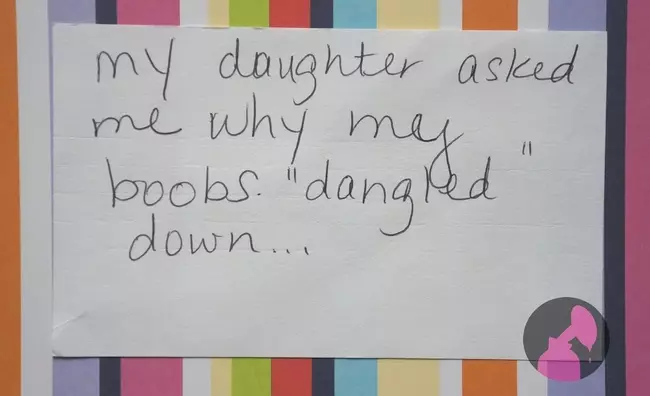 my daughter asked
me why my
boobs. "dangled"
down...